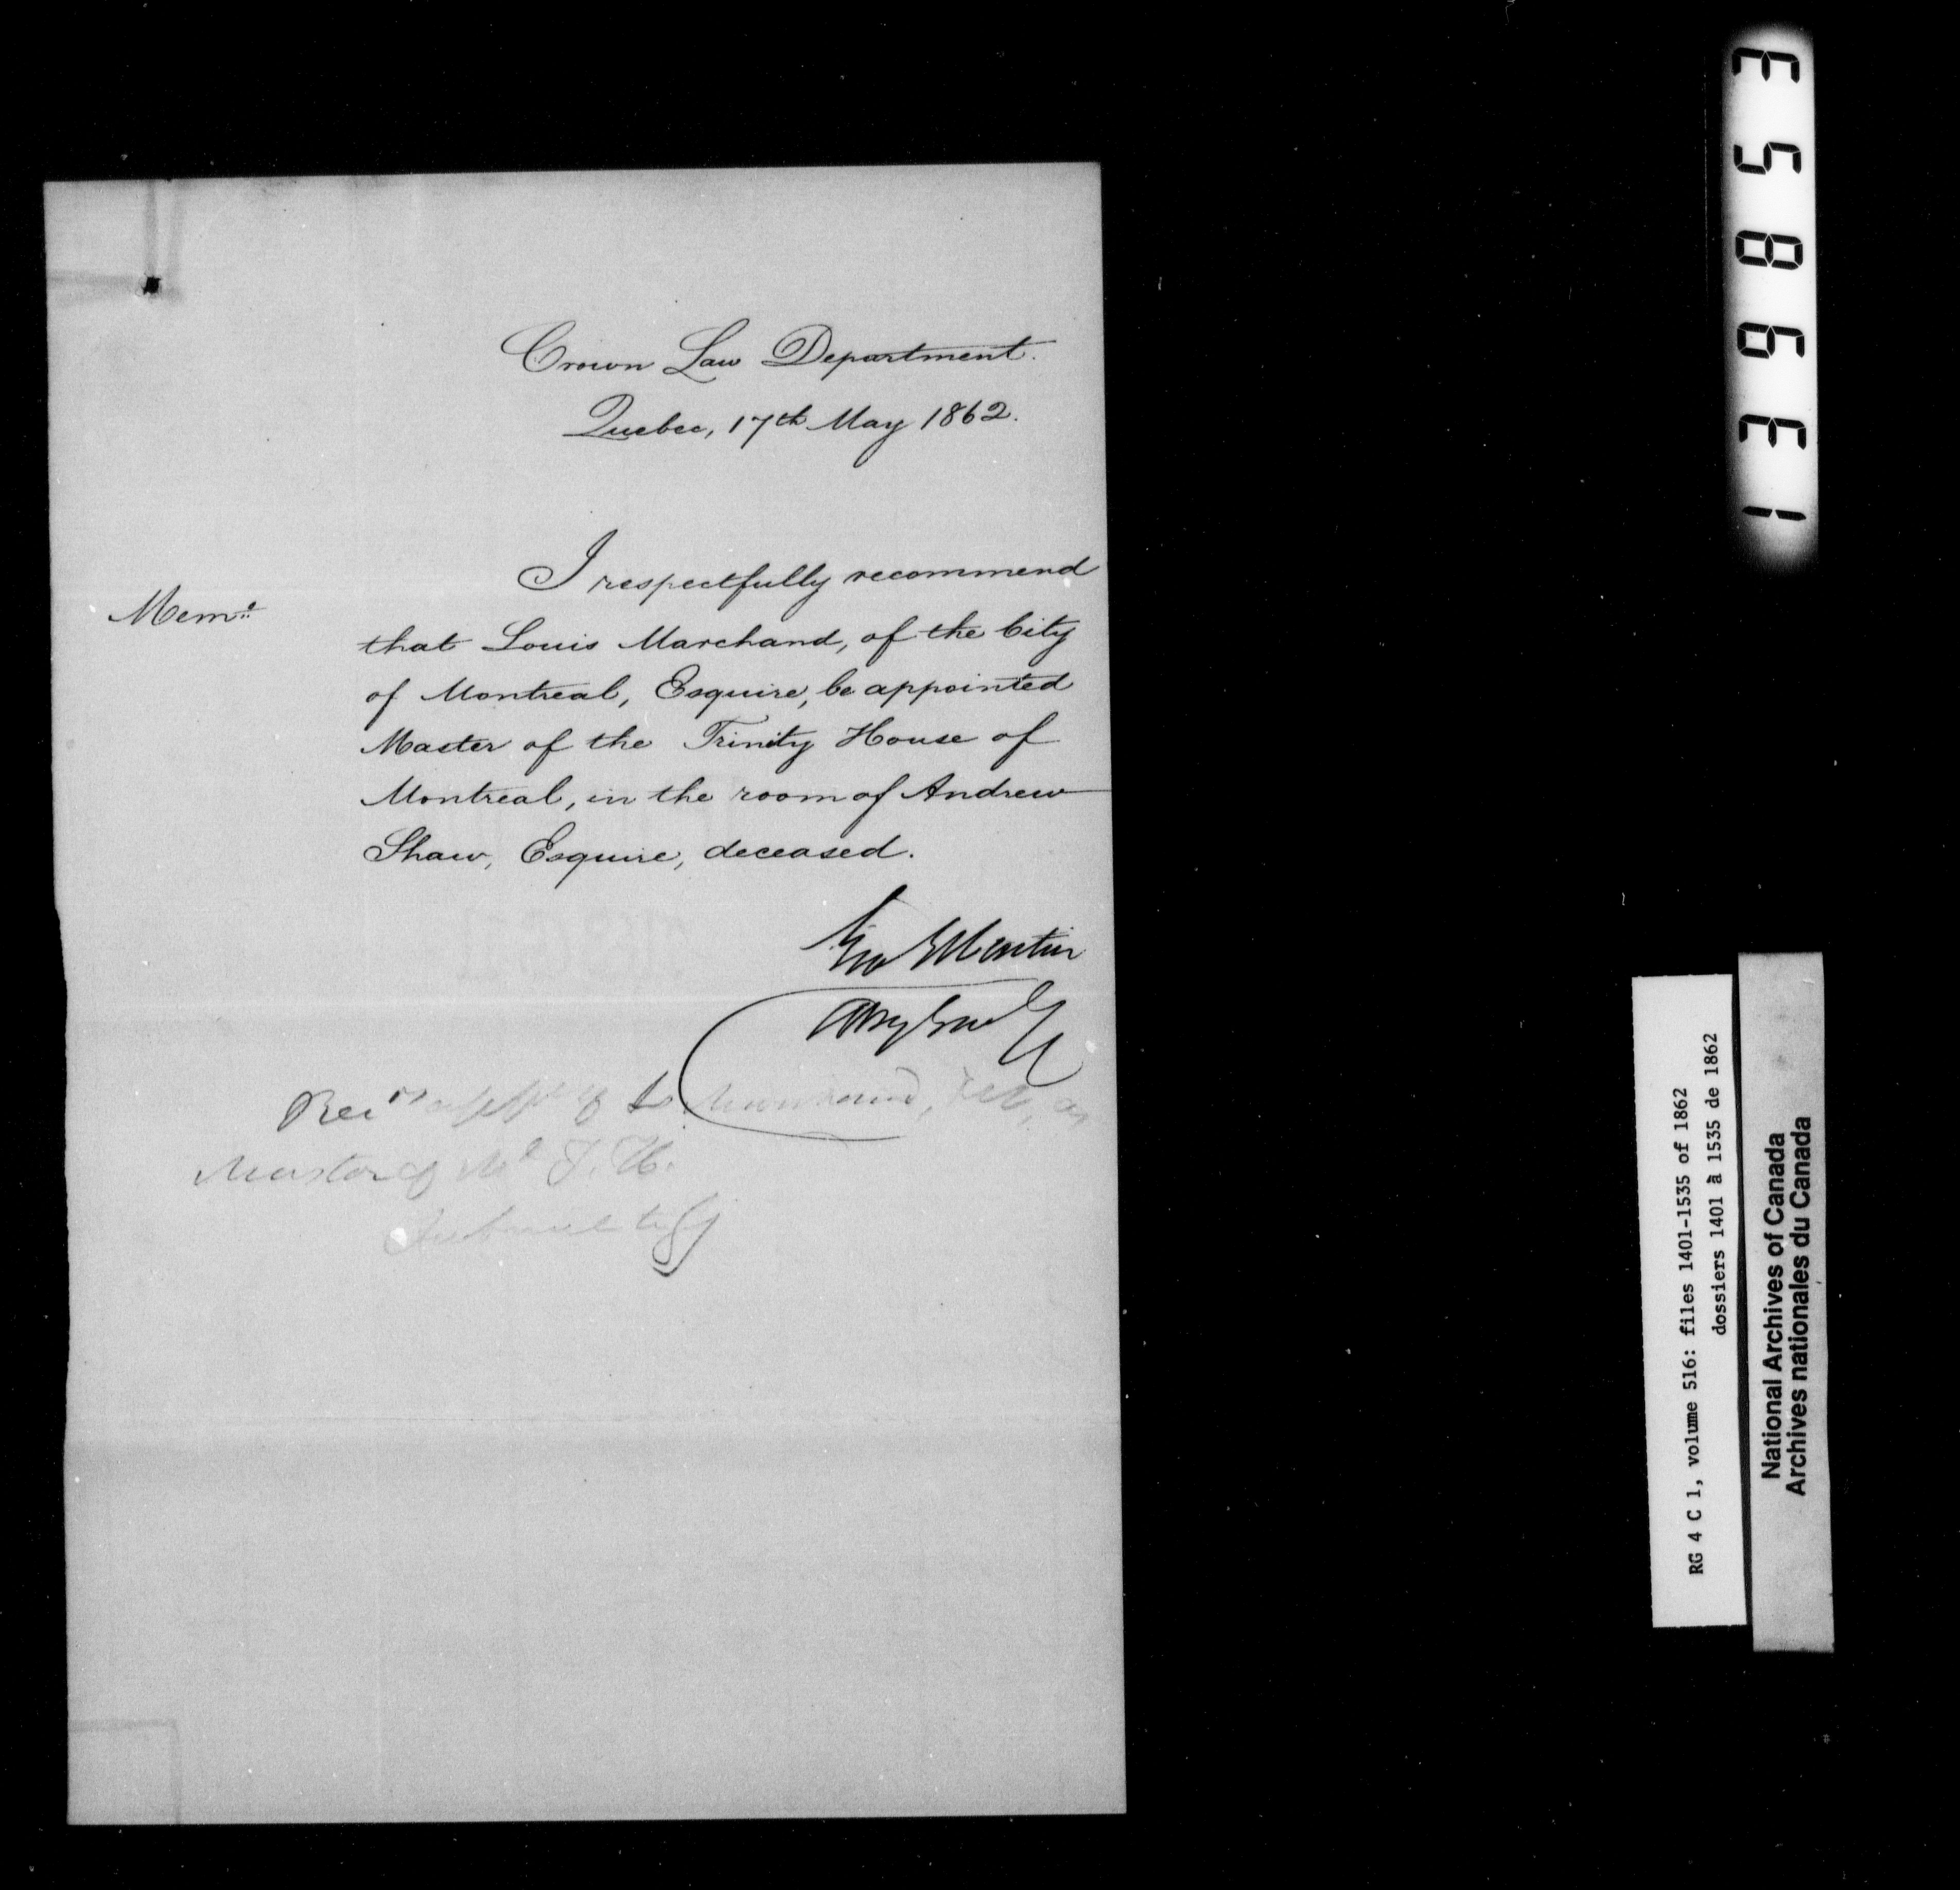 Crown Law Department.
Quebec, 17th May 1862.
I respectfully recommend
Memo
that Louis Marchand, of the City
of Montreal, Esquire, be appointed
Master of the Trinity House of
Montreal, in the room of Andrew
Shaw, Esquire, deceased.
Atty Genl
of L Marchand, as
Master of Ml T. H.
139853
RG 4 C 1, volume 516: files 1401-1535 of 1862
dossiers 1401 à 1535 de 1862
National Archives of Canada
Archives nationales du Canada